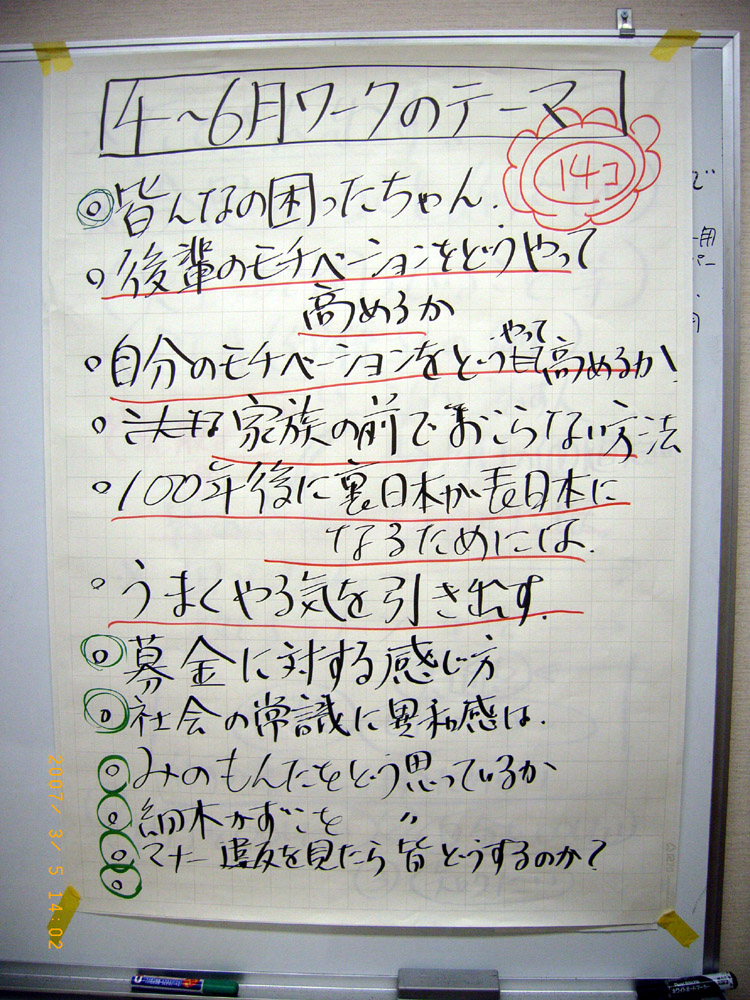 4〜6月ワークのテーマ
14コ
皆んなの困ったちゃん.
後輩のモチベーションをどうやって
高めるか
やって
自分のモチベーションをどう高めるか!
家族の前でおこらない方法
100年後に裏日本が表日本に
なるためには.
うまくやる気を引き出す.
募金に対する感じ方
社会の常識に異和感は.
みのもんたをどう思っているか
細木かずこを 〃
マナー違反を見たら皆どうするのか?
2007/ 3/ 5 14:02